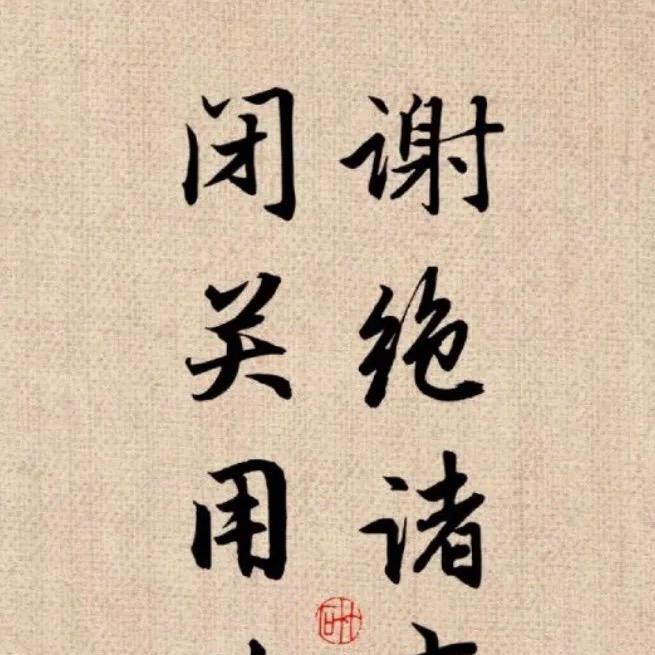 谢绝诸
闭关用